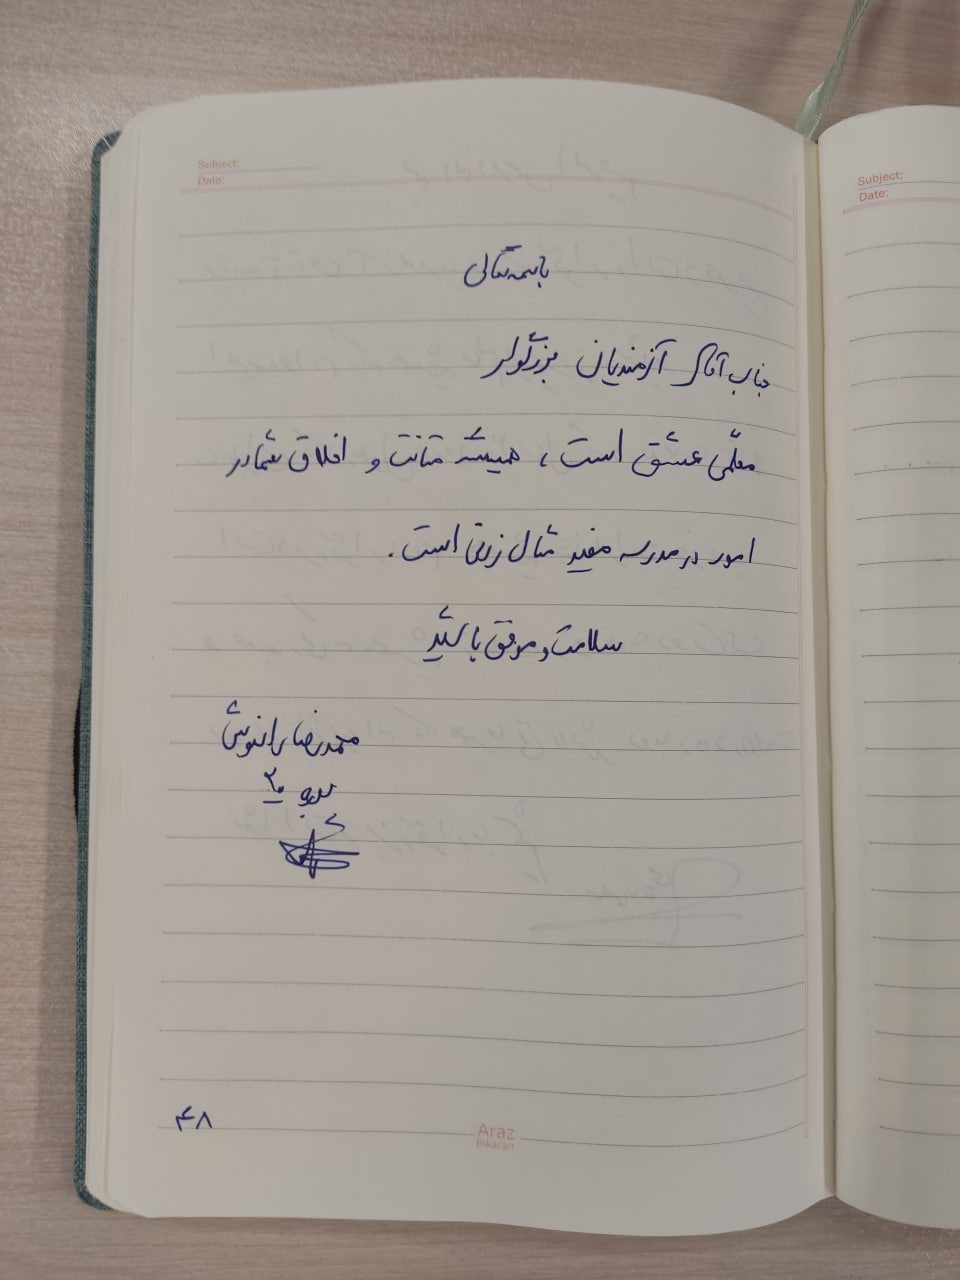 Subject:
Date:
باسمه تعالی
جناب آقای آزمندیان بزرگوار
معلّمی عشق است، همیشه متانت و اخلاق شما در
امور در مدرسه مفید مثال زدنی است.
سلامت و موفق باشید
محمدرضا
۴۸
Araz
Bikaran
Subject:
Date: